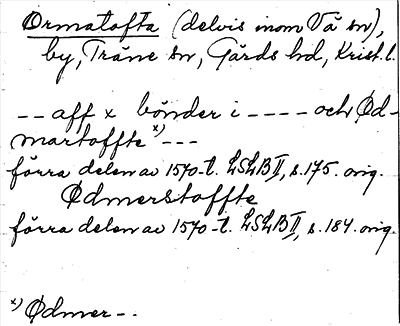 Ormatofta (delvis inom Vä sn),
by, Träne sn, Gärds hd, Krist. l.
-- aff x bönder i ---- och Ød-
martoffte x) ---
förra delen av 1570-t. LSLB II, s. 175. orig.
Ødmerstoffte
förra delen av 1570-t. LSLB II, s. 184. orig.
x) Ødmer--